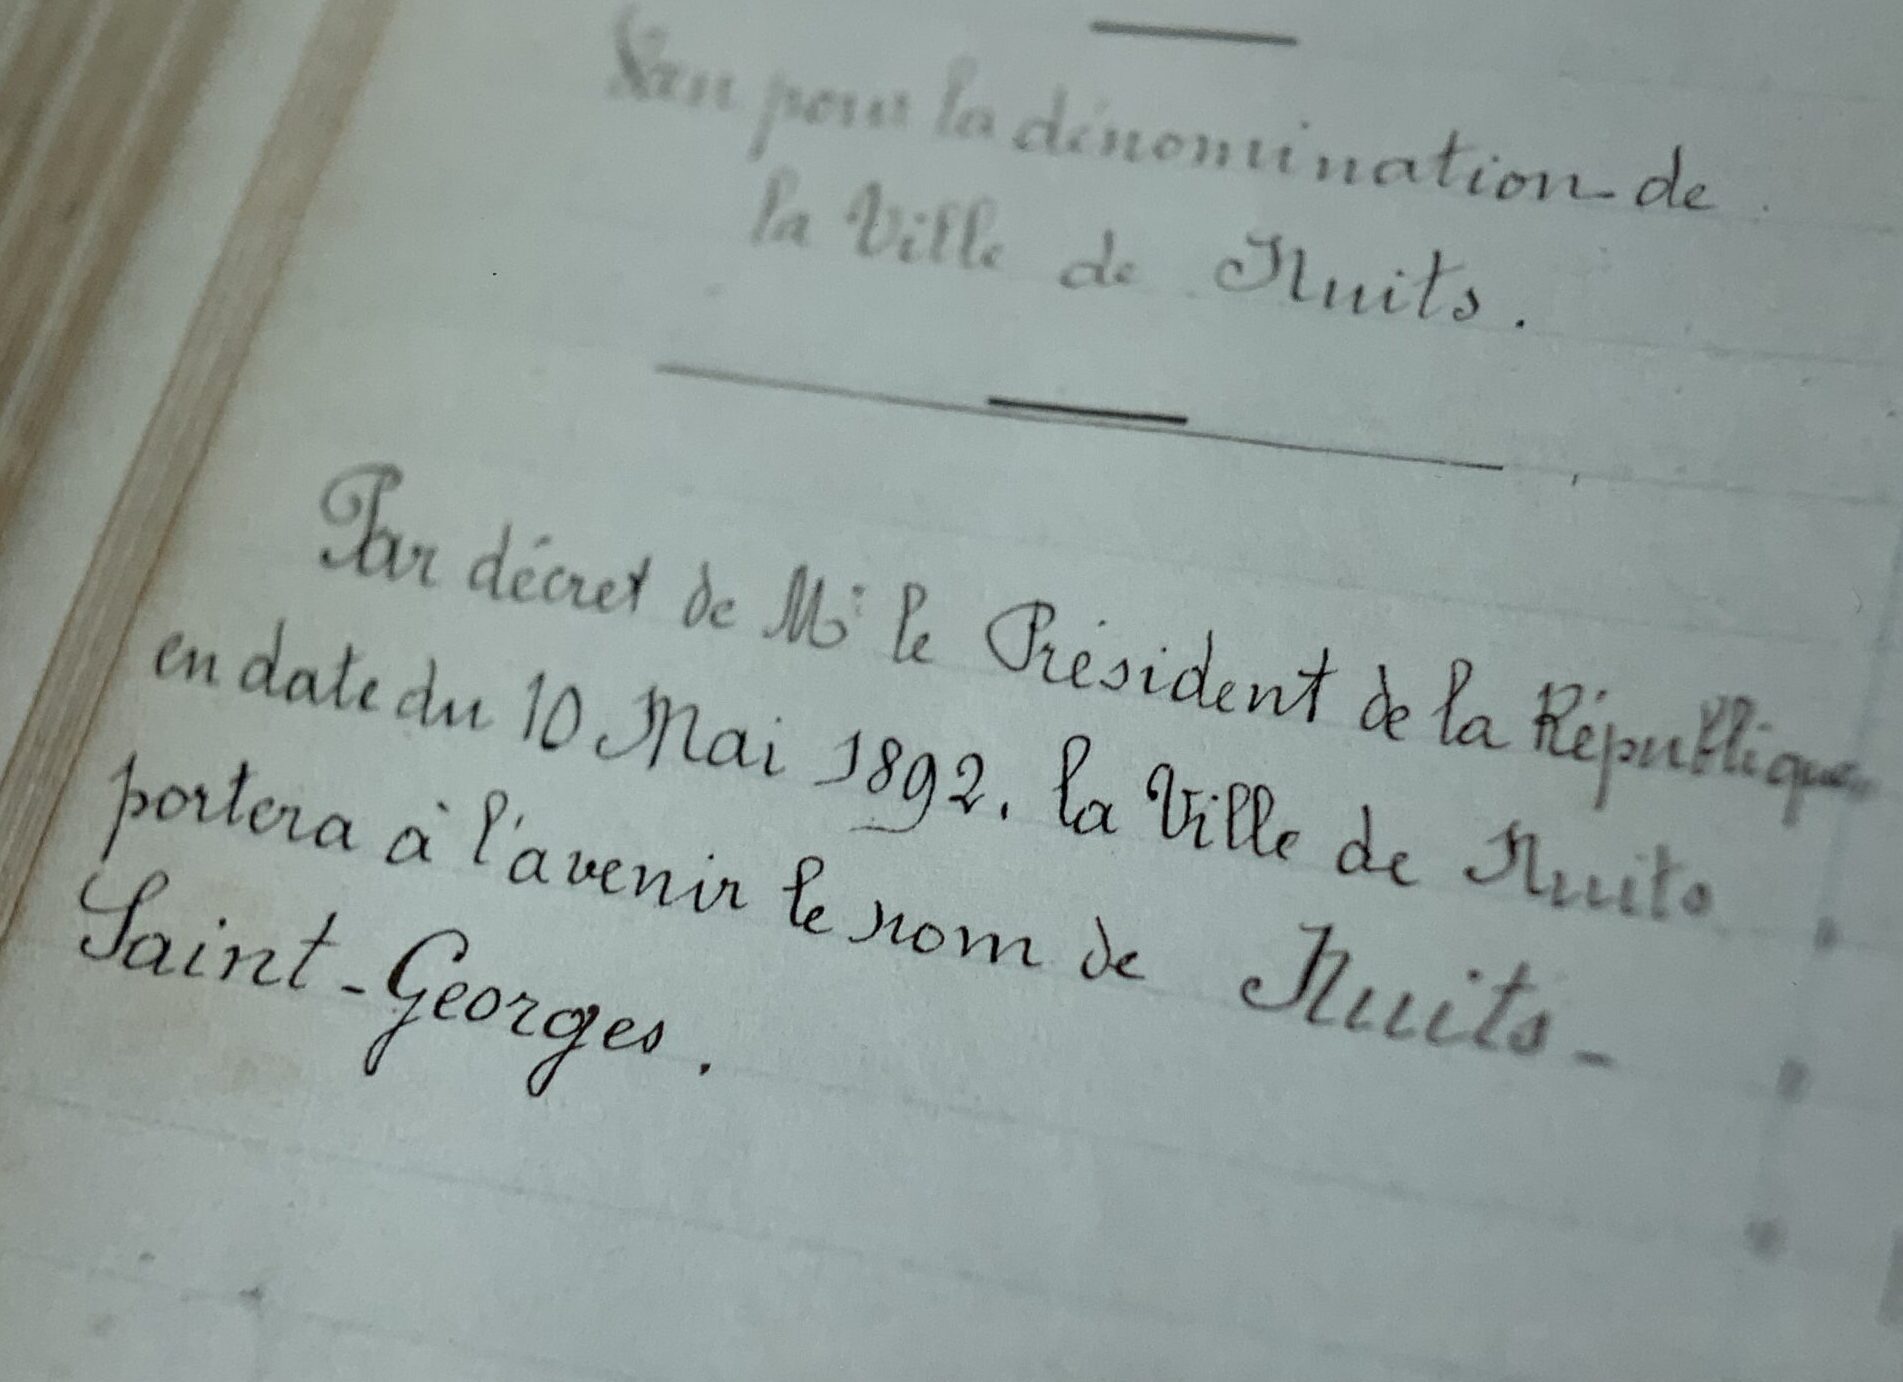 pour la dénomination de
la Ville de Nuits.
Par décret de Mr le Président de la République
en date du 10 Mai 1892, la Ville de Nuits
portera à l'avenir le nom de Nuits-
Saint-Georges.